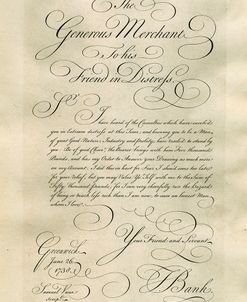 The
Generous Merchant
To his
Friend in Distress.
Sr. I
have heard of the Casualties which have involv'd
you in extream distress at this time, and knowing you to be a Man
of great Good Nature, Industry and probity, have resolv'd to stand by
you. Be of good Chear, the Bearer brings with him Five thousand
Pounds, and has my Order to Answer your Drawing as much more
on my Account. I did this in hast for fear I should come too late
for your Relief, but you may Value Yr. Self with me to the Sum of
Fifty thousand pounds, for I can very chearfully run the Hazard
of being so much less rich than I am now, to save an honest Man
whom I Love.
Your Friend and Servant
Greenwich
June 26.
1738.
T Bank.
Samuel Vaux
scrip.